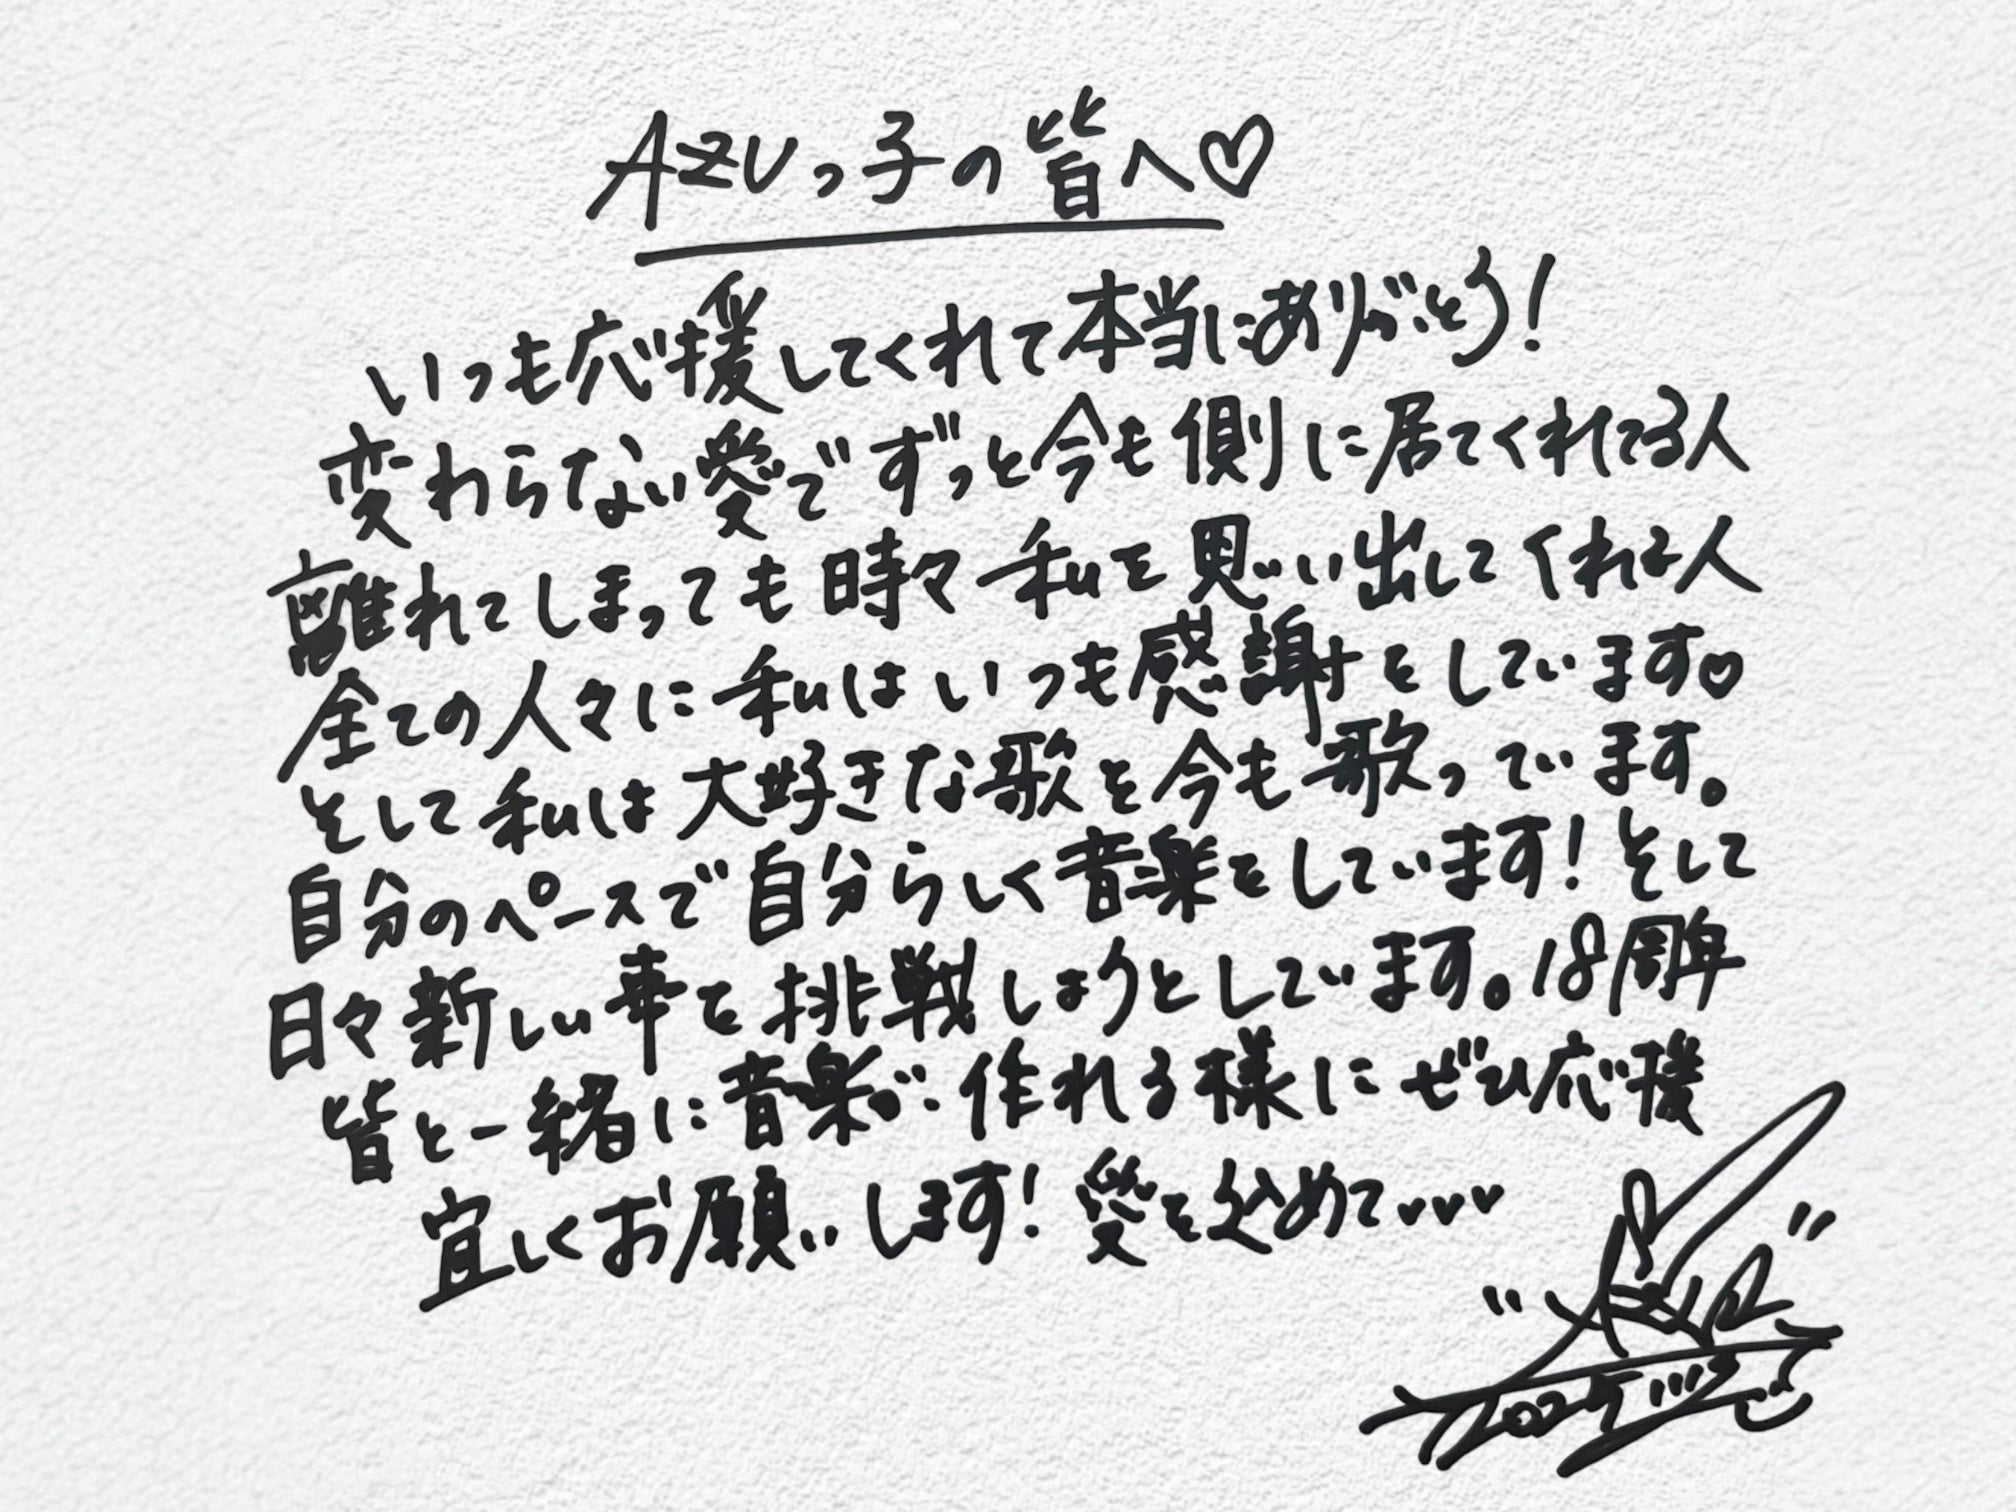 AZUっ子の皆へ♡
いつも応援してくれて本当にありがとう!
変わらない愛でずっと今も側に居てくれてる人
離れてしまっても時々私を思い出してくれる人
全ての人々に私はいつも感謝をしています♡
そして私は大好きな歌を今も歌っています。
自分のペースで自分らしく音楽をしています!そして
日々新しい事を挑戦しようとしています。18周年
皆と一緒に音楽が作れる様にぜひ応援
宜しくお願いします!愛を込めて♥♥♥